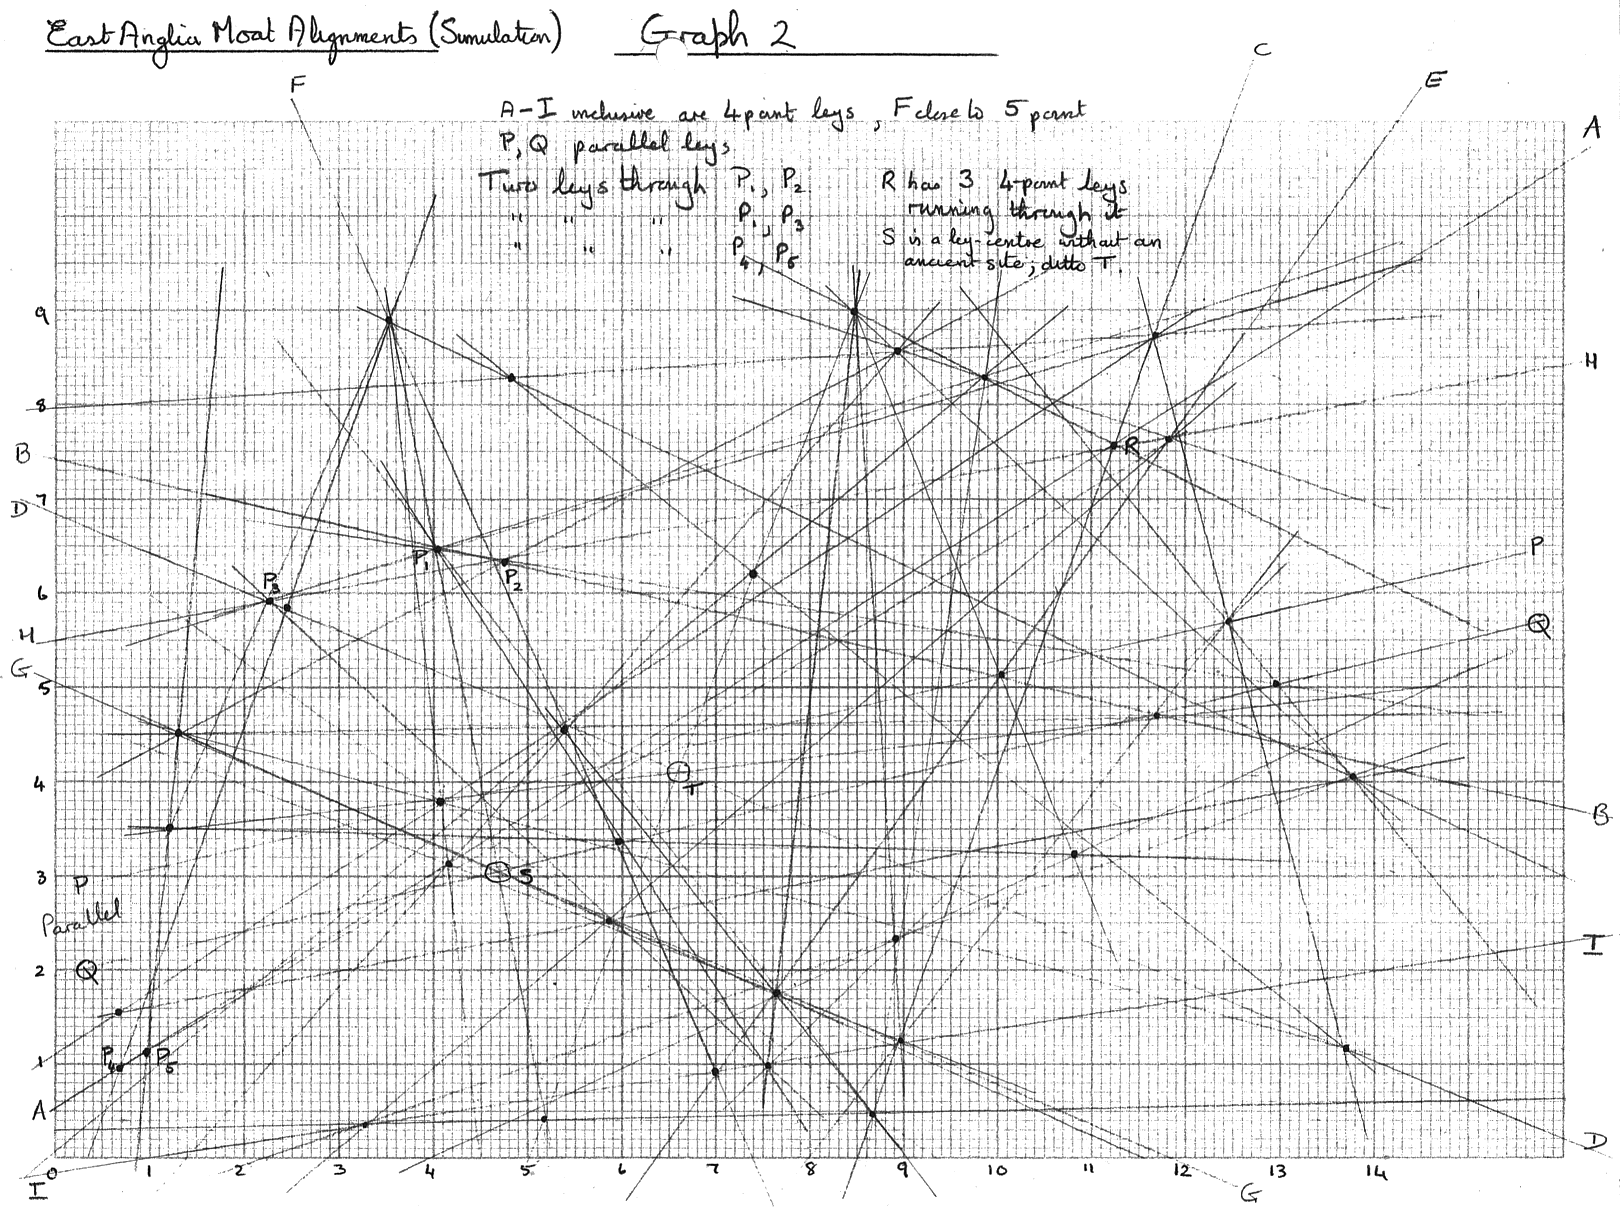 East Anglia Moat Alignments (Simulation) Graph 2
C
F
E
A-I inclusive are 4 point leys, F close to 5 point
A
P, Q parallel leys
Two leys through P1, P2
" " " P1, P3
" " " P4, P5
R has 3 4-point leys
running through it
S is a ley-centre without an
ancient site; ditto T.
9
H
8
B
R
7
D
P1
P2
P
P3
6
H
Q
G
5
4
T
B
3
S
P
Parallel
I
2
Q
1
P4
P5
A
D
0 1 2 3 4 5 6 7 8 9 10 11 12 13 14
I
G